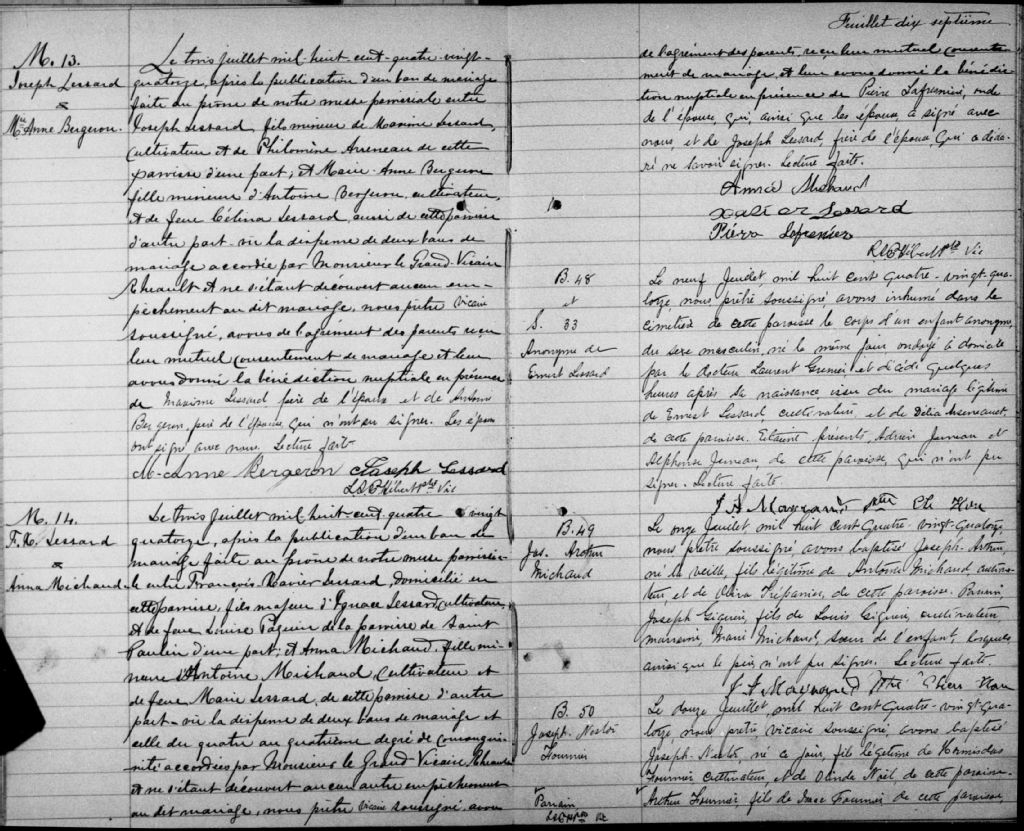 M. 13.
Joseph Lessard
&
Mlle Anne Bergeron.
Le trois juillet mil-huit-cent-quatre-vingt-
quatorze, après la publication d'un ban de mariage
faite au prône de notre messe paroissiale entre
Joseph Lessard, fils mineur de Maxime Lessard,
cultivateur et de Philomène Arseneau de cette
paroisse d'une part; et Marie-Anne Bergeron
fille mineure d'Antoine Bergeron, cultivateur,
et de feue Célina Lessard, aussi de cette paroisse
d'autre part - vu la dispense de deux bans de
mariage accordée par Monsieur le Grand-Vicaire
Rheault et ne s'étant découvert aucun em-
pêchement au dit mariage, nous prêtre vicaire
soussigné, avons de l'agrément des parents reçu
leur mutuel consentement de mariage et leur
avons donné la bénédiction nuptiale en présence
de Maxime Lessard père de l'époux et de Antoine
Bergeron, père de l'épouse, qui n'ont su signer. Les époux
ont signé avec nous. Lecture faite
M-anne Bergeron Joseph Lessard
Hébert ptre Vic
M. 14.
F. X. Lessard
&
Anna Michaud
Le trois juillet mil-huit-cent-quatre vingt
quatorze, après la publication d'un ban de
mariage faite au prône de notre messe paroissia-
le entre François-Xavier Lessard, domicilié en
cette paroisse, fils majeur d'Ignace Lessard, cultivateur,
et de feue Louise Paquin de la paroisse de Saint
Paulin d'une part; et Anna Michaud, fille mi-
neure d'Antoine Michaud, cultivateur et
de feue Marie Lessard, de cette paroisse d'autre
part - vu la dispense de deux bans de mariage et
celle du quatre au quatrième degré de consangui-
nité accordées par Monsieur le Grand-Vicaire Rheault
et ne s'étant découvert aucun autre empêchement
au dit mariage, nous prêtre vicaire soussigné, avons
Feuillet dix septième
de l'agrément des parents, reçu leur mutuel consente-
ment de mariage, et leur avons donné la bénédic-
tion nuptiale en présence de Pierre Lafrenière, oncle
de l'épouse, qui, ainsi que les époux, a signé avec
nous, et de Joseph Lessard, frère de l'époux, qui a décla-
ré ne savoir signer. Lecture faite.
Michaud
Lessard
Hébert ptre Vic
B. 48
et
S. 33
Anonyme de
Ernest Lessard
Le neuf Juillet, mil huit cent quatre-vingt-qua-
torze, nous prêtre soussigné, avons inhumé dans le
cimetière de cette paroisse le corps d'un enfant anonyme,
du sexe masculin, né le même jour ondoyé à domicile
par le docteur Laurent Grenier et décédé quelques
heures après sa naissance issu du mariage légitime
de Ernest Lessard, cultivateur, et de Délia Arseneault,
de cette paroisse. Etaient présents, Adrien Juneau et
Alphonse Juneau, de cette paroisse, qui n'ont pu
signer. Lecture faite.
ptre
B. 49
Jos. Arthur
Michaud
Le onze Juillet, mil huit cent quatre-vingt-quatorze
nous prêtre soussigné avons baptisé Joseph-Arthur,
né la veille, fils légitime de Antoine Michaud cultiva-
teur, et de Trépanier, de cette paroisse. Parrain,
Joseph Gignac, fils de Louis Gignac, cultivateur,
marraine, Marie Michaud, sœur de l'enfant, lesquels
ainsi que le père, n'ont pu signer. Lecture faite.
Ptre
B. 50
Joseph-Nestor
Fournier
Le douze Juillet, mil huit cent quatre-vingt-qua-
torze, nous prêtre vicaire soussigné, avons baptisé
Joseph-Nestor, né ce jour, fils légitime de Hormisdas
Fournier cultivateur, et de Noël de cette paroisse.
Parrain,
Arthur Fournier, fils de Isaac Fournier de cette paroisse,